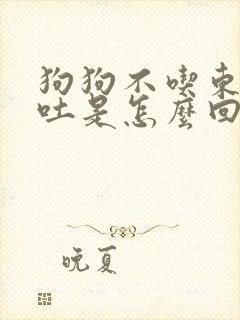 狗狗不喫東
吐是怎麼回
晚夏